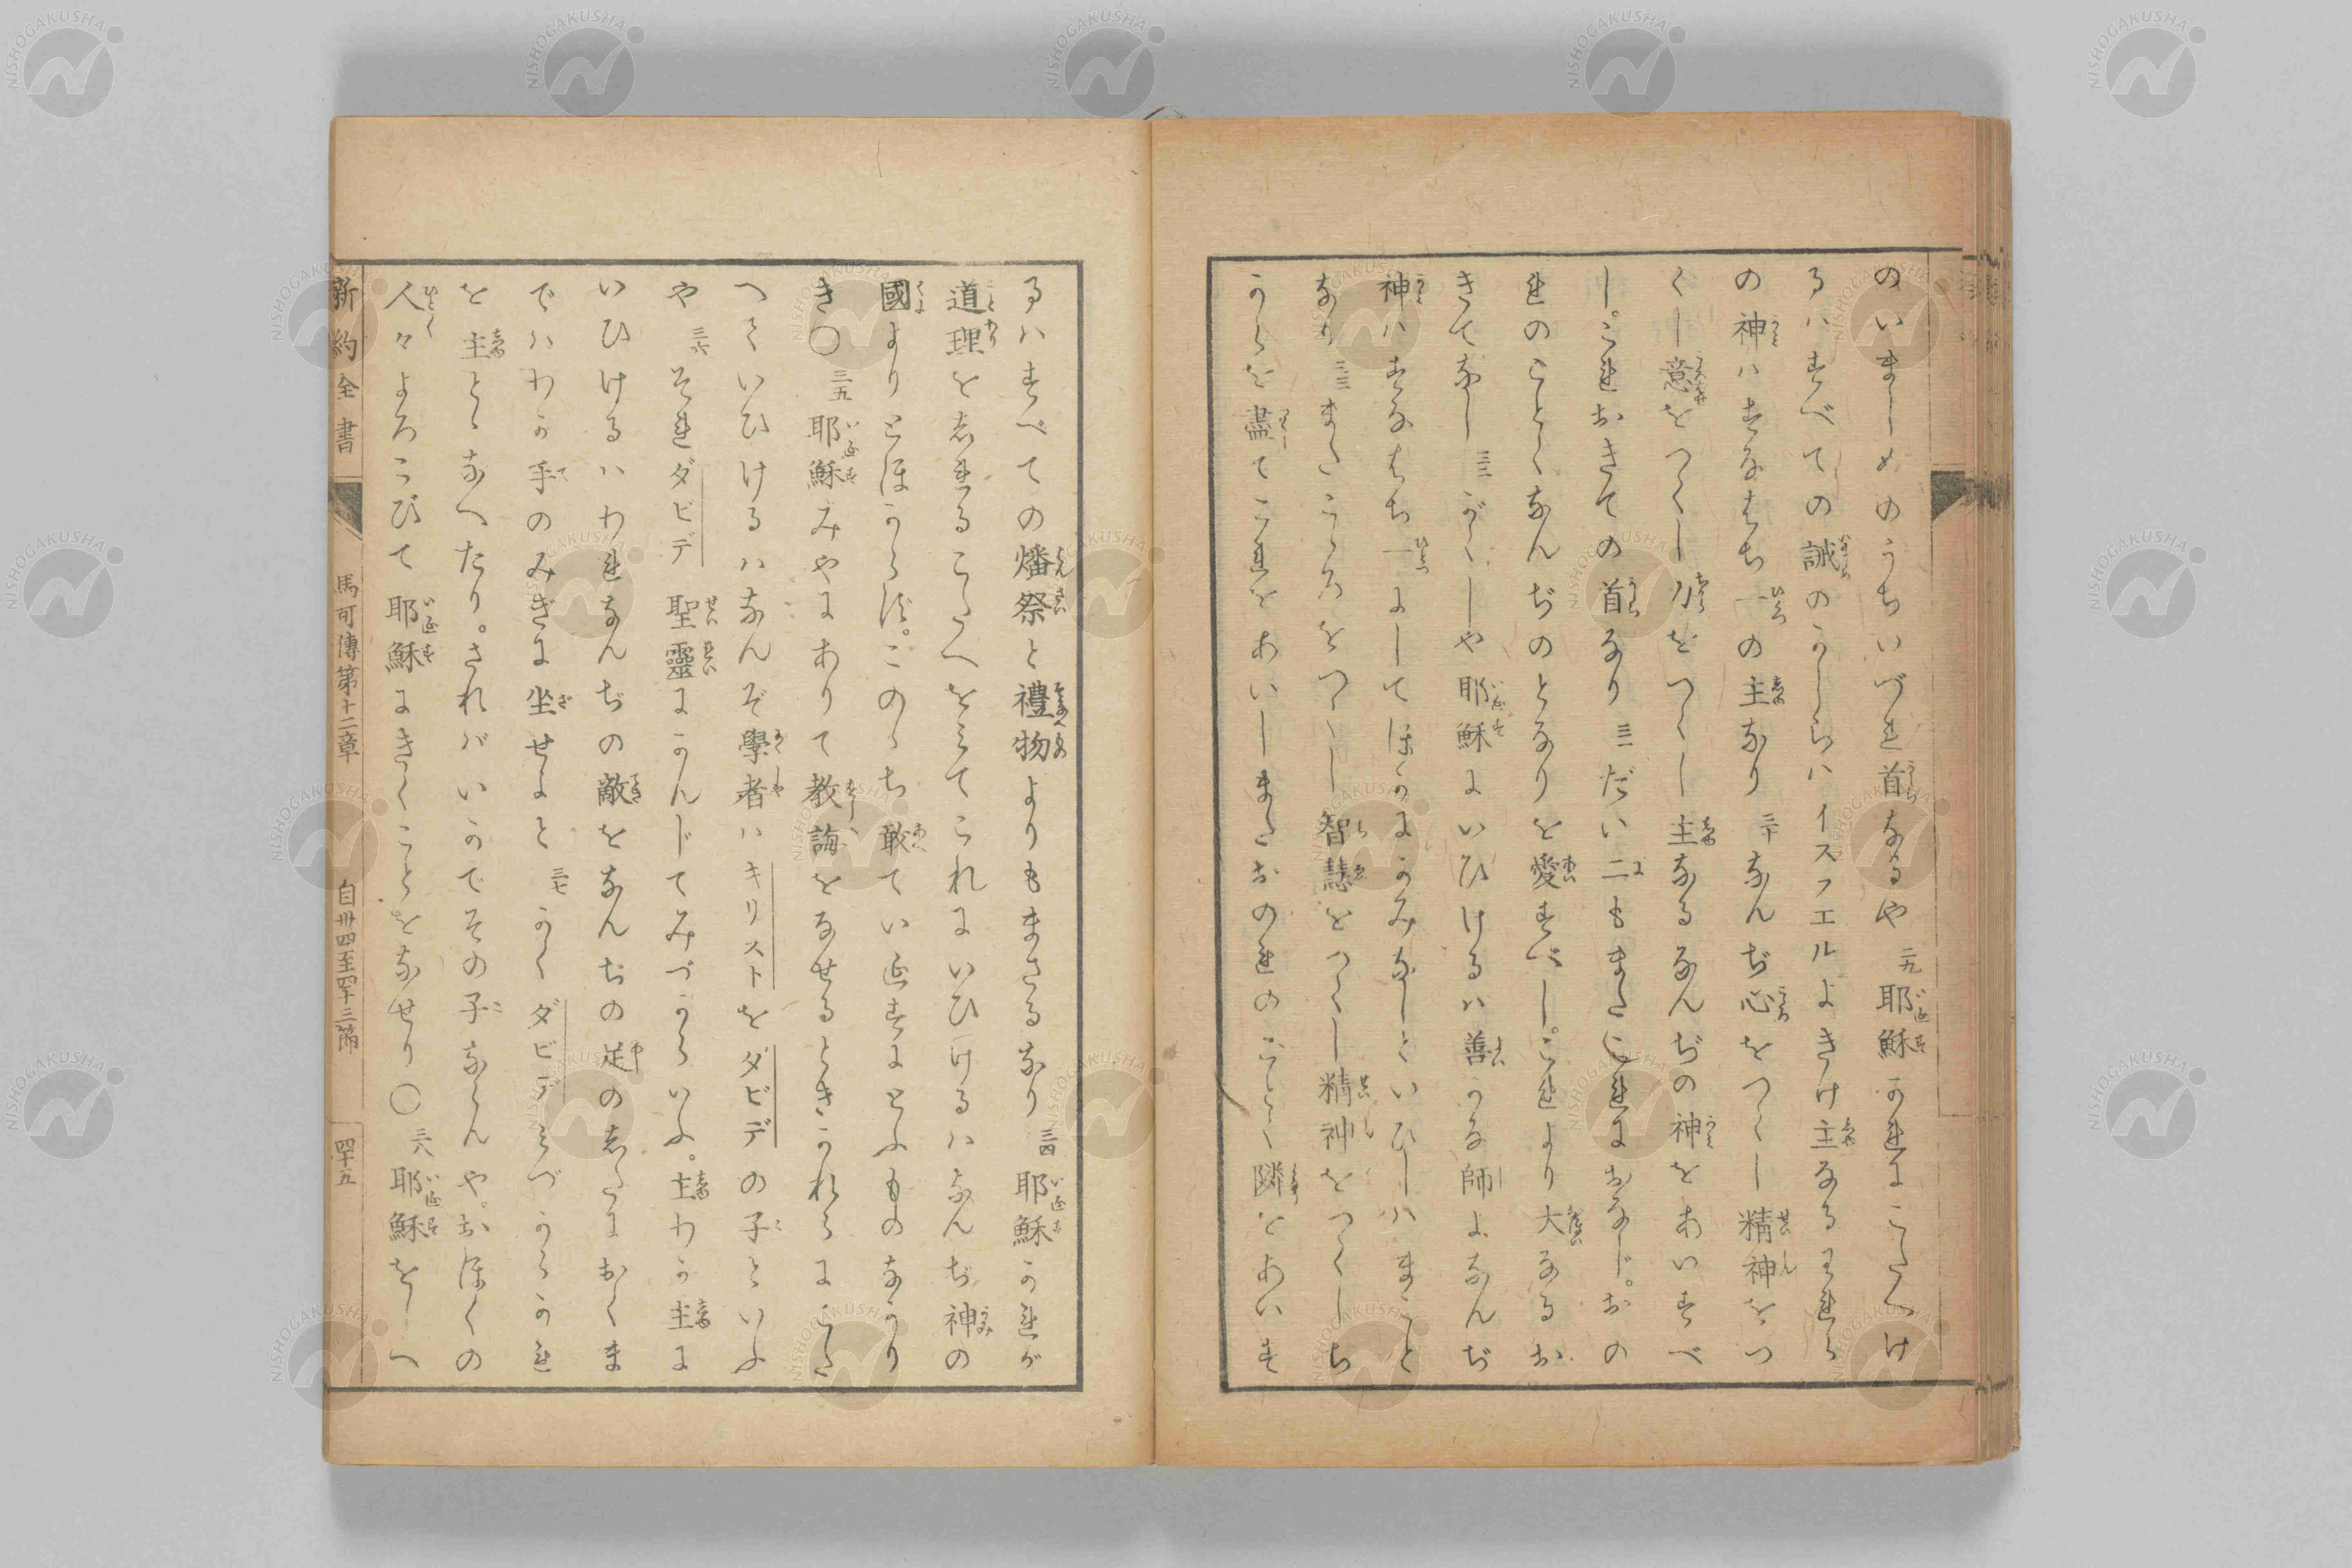 のいましめのうちいづれ首なるや 二九 耶穌かれにこたへけ
るハすべての誡のかしらハイスラエルよきけ主なるわれら
の神ハすなはち一の主なり 三十 なんぢ心をつくし精神をつ
くし意をつくし力をつくし主なるなんぢの神をあいすべ
し。これおきての首なり 三一 だい二もまたこれにおなじ。おの
れのごとくなんぢのとなりを愛すべし。これより大なるお
きてなし 三二 がくしや耶穌にいひけるハ善かな師よなんぢ
神ハすなはち一にしてほかにかみなしといひしハまこと
なり 三三 またこゝろをつくし智慧をつくし精神をつくしち
からを盡てこれをあいしまたおのれのごとく隣をあいす
るハすべての燔祭と禮物よりもまさるなり 三四 耶穌かれが
道理をしれるこたへをみてこれにいひけるハなんぢ神の
國よりとほからず。こののち敢てイエスにとふものなかり
き〇 三五 耶穌みやにありて教誨をなせるときかれらにこた
へていひけるハなんぞ學者ハキリストをダビデの子といふ
や 三六 それダビデ聖靈にかんじてみづからいふ。主わが主に
いひけるハわれなんぢの敵をなんぢの足のしたにおくま
でハわが手のみぎに坐せよと 三七 かくダビデみづからかれ
を主とゝなへたり。されバいかでその子ならんや。おほくの
人々よろこびて耶穌にきくことをなせり〇 三八 耶穌をしへ
新約全書 馬可傳第十二章 自卅四至四十三節 四十五
NISHOGAKUSHA